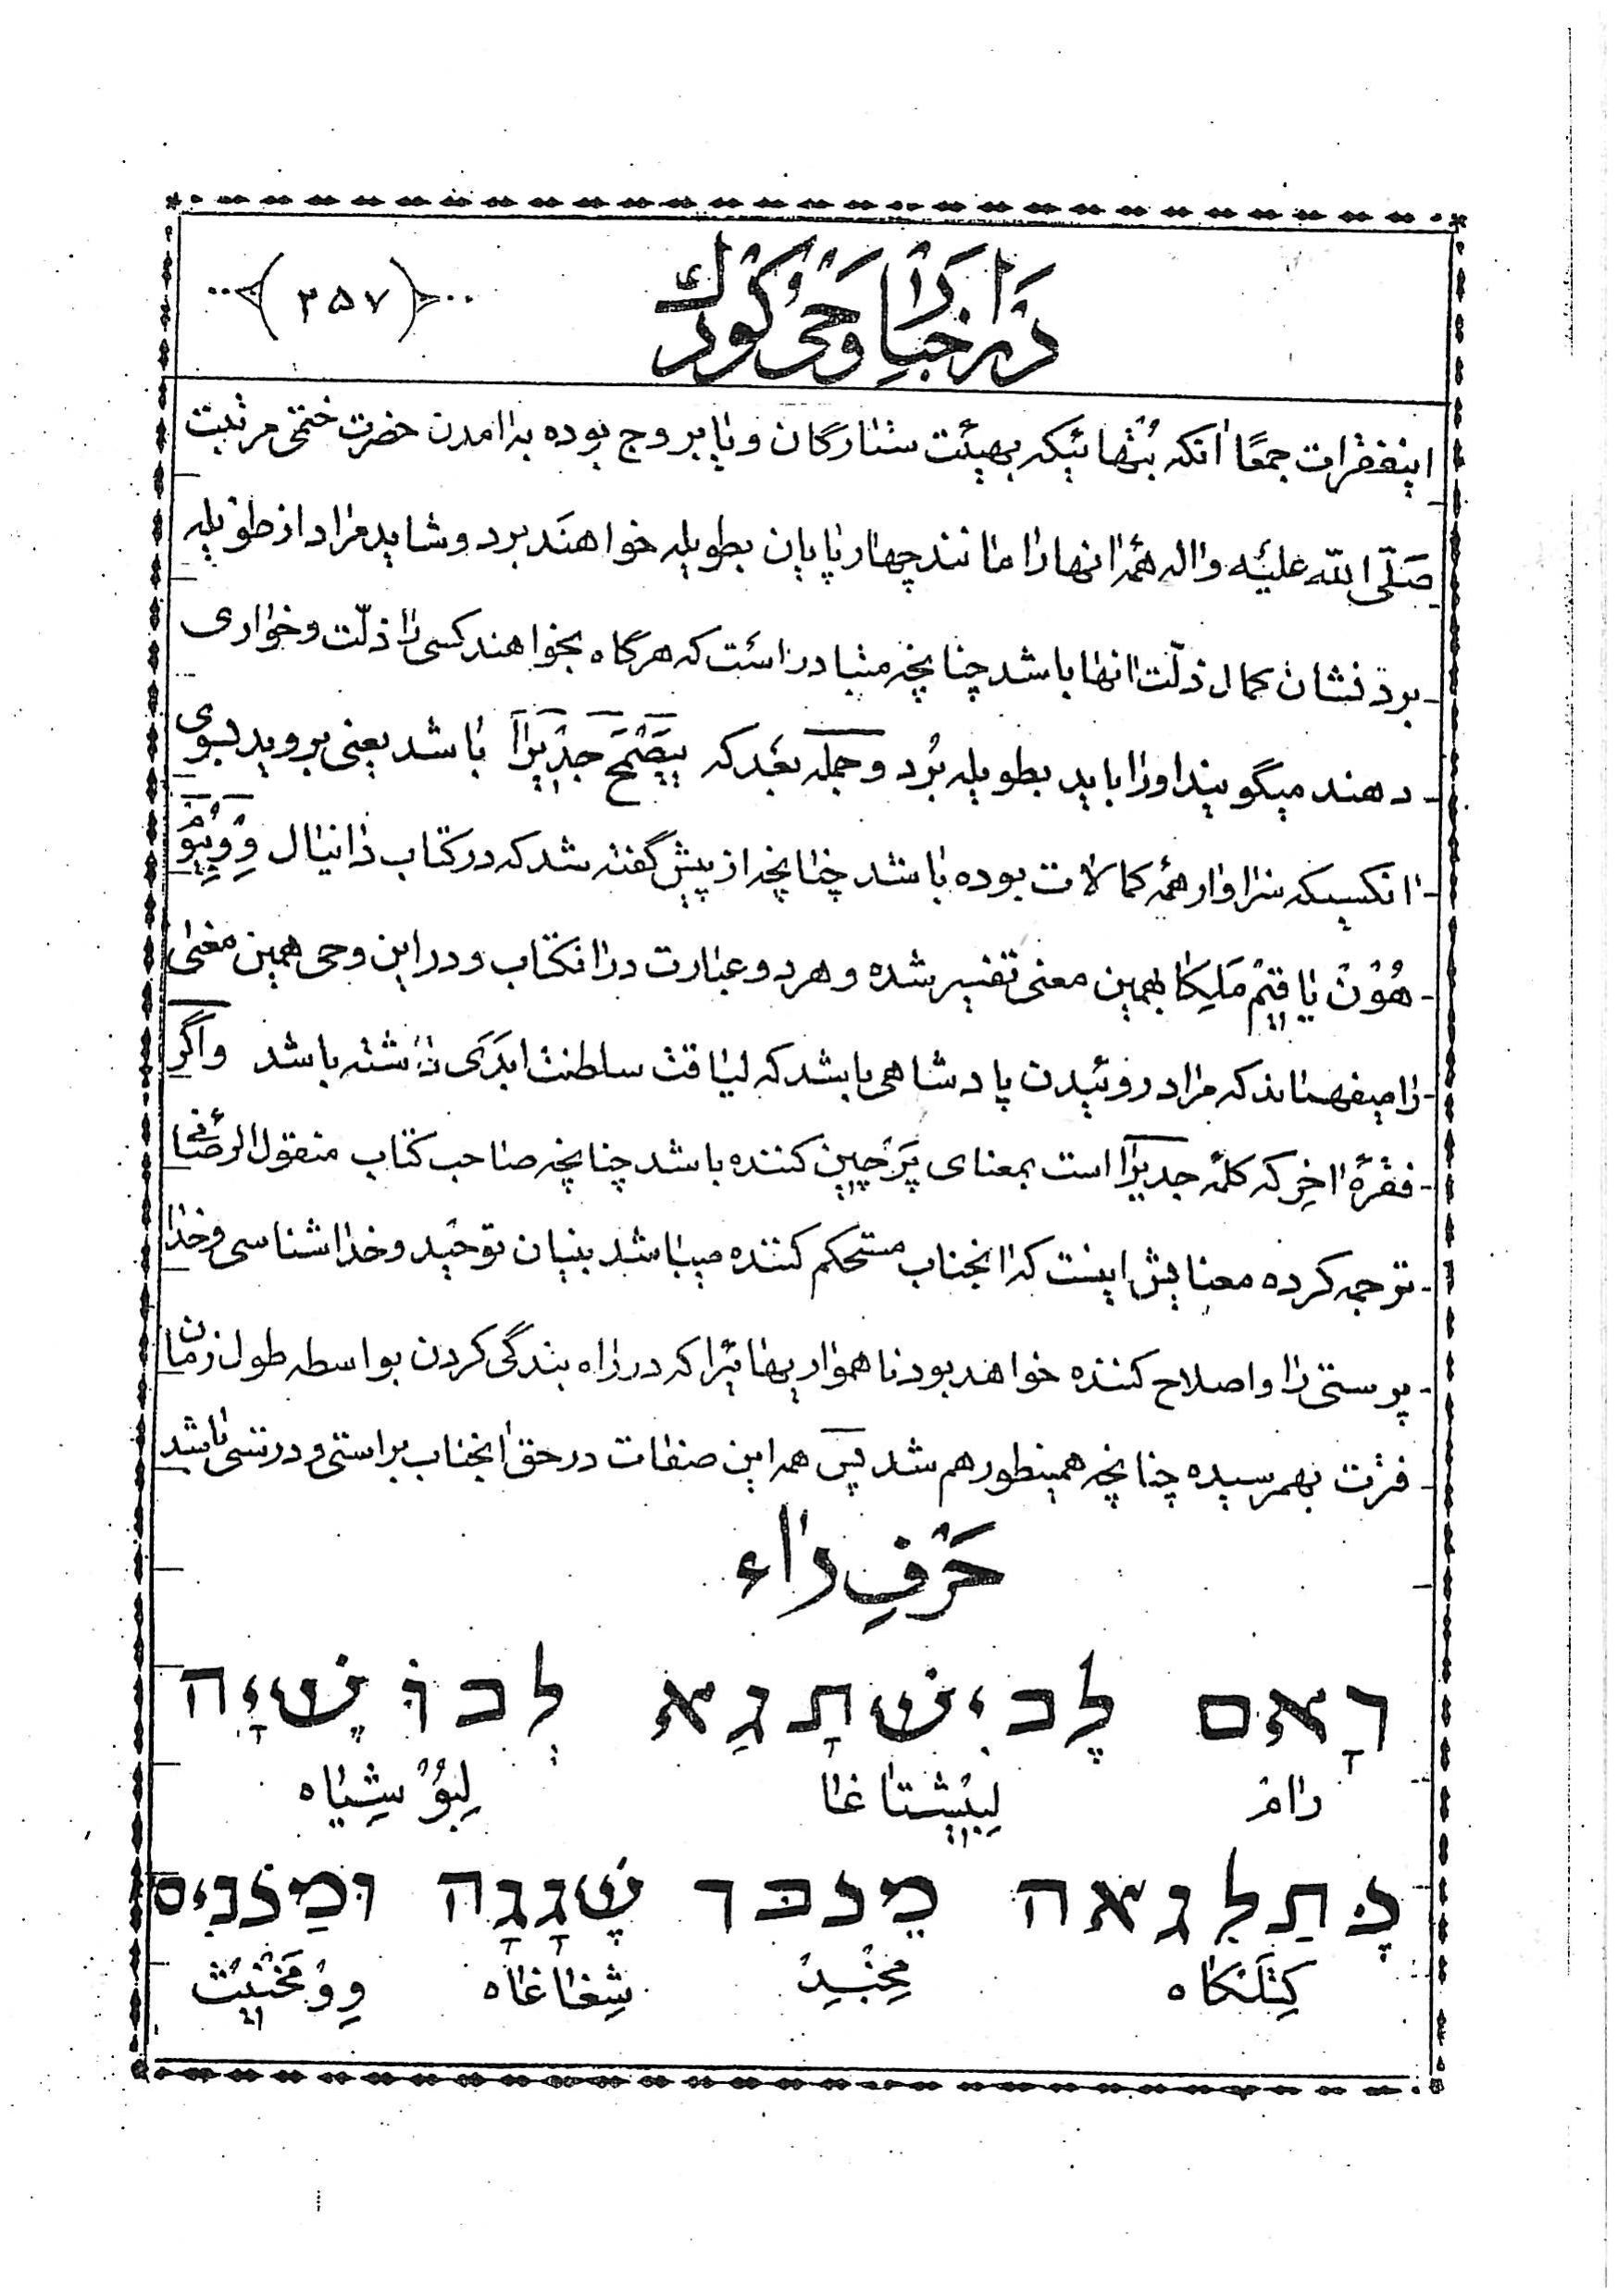 در اخبار وحی کودک
(٢٥٧)
اینفقرات جمعًا انکه بُتهائیکه بهیئت ستارگان و یا بروج بوده به امدن حضرت ختمی مرتبت
صَلّی الله علیْه واله همهٔ انها را مانند چهار پایان بطویله خواهند برد و شاید مراد از طویله
برد نشان کمال ذلّت انها باشد چنانچه متبادر است که هرگاه بخواهند کسی را ذلّت و خواری
دهند میگویند او را باید بطویله بُرد و جمله بعد که ییصْمَح جدیرا باشد یعنی بروید بسوی
انکسیکه سزاوار همه کمالات بوده باشد چنانچه از پیش گفته شد که در کتاب دانیال وِوِیُوْ
هُوْنْ یاقیمْ مَلِکا بهمین معنی تفسیر شده و هر دو عبارت در انکتاب و در این وحی همین معنی
را میفهماند که مراد روئیدن پادشاهی باشد که لیاقت سلطنت ابدَی داشته باشد واگر
فقرهٔ اخِر که کلمهٔ جدیرا است بمعنای پَرچین کننده باشد چنانچه صاحب کتاب منقول الرضائی
ترجمه کرده معنایش اینست که انجناب مستحکم کننده میباشد بنیان توحید و خدا شناسی و خدا
پرستی را و اصلاح کننده خواهد بود ناهمواریهائیرا که در راه بندگی کردن بواسطه طول زمان
فترت بهمرسیده چنانچه همینطور هم شد پس همه این صفات در حق انجناب براستی و درستی باشد
حَرْفِ راء
רָאם לְבִישְׁתָגֵא לְבוּשְׁיָה
رامْ لِبیشْتاغا لِبُوْشِیاه
כְּתַלְגאה מֵנבּד שְׁגָגָה וּמַנבִּים
کِتَلْکاه مِحْنبِدْ شِغاغاه وِوُ